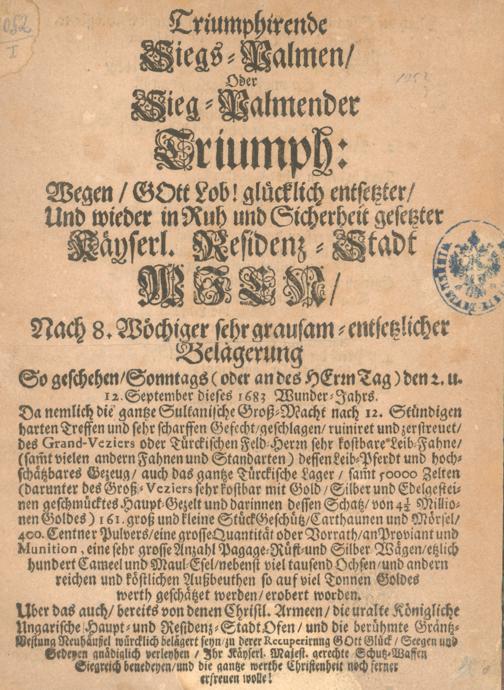 Triumphirende
Siegs-Palmen/
Oder
Sieg-Palmender
Triumph:
Wegen / GOtt Lob! glücklich entsetzter/
Und wieder in Ruh und Sicherheit gesetzter
Käyserl. Residenz-Stadt
WIEN/
Nach 8. Wöchiger sehr grausam-entsetzlicher
Belägerung
So geschehen/Sonntags (oder an des HErrn Tag) den 2. u.
12. September dieses 1683 Wunder-Jahrs.
Da nemlich die gantze Sultanische Groß-Macht nach 12. Stündigen
harten Treffen und sehr scharffen Gefecht/geschlagen/ruiniret und zerstreuet/
des Grand-Veziers oder Türckischen Feld-Herrn sehr kostbare Leib-Fahne/
(samt vielen andern Fahnen und Standarten) dessen Leib-Pferdt und hoch-
schätzbares Gezeug/ auch das gantze Türckische Lager / samt 50000 Zelten
(darunter des Groß-Veziers sehr kostbar mit Gold / Silber und Edelgestei-
nen geschmücktes Haupt-Gezelt und darinnen dessen Schatz/von Millio-
nen Goldes) 161. groß und kleine Stück Geschütz/Carthaunen und Mörsel/
400. Centner Pulvers/eine grosse Quantität oder Vorrath/an Proviant und
Munition, eine sehr grosse Anzahl Pagage-Rüst-und Silber Wägen/etzlich
hundert Cameel und Maul-Esel/nebenst viel tausend Ochsen/und andern
reichen und köstlichen Außbeuthen so auf viel Tonnen Goldes
werth geschätzet werden/erobert worden.
Uber das auch/ bereits von denen Christl. Armeen/die uralte Königliche
Ungarische Haupt-und Residenz-Stadt Ofen/ und die berühmte Gräntz-
Vestung Neuhäusel würcklich belägert seyn/zu derer Recuperirung GOtt Glück/ Seegen und
Gedeyen gnädiglich verleyhen / Ihr Käyserl. Majest. gerechte Schutz-Waffen
Siegreich benedeyen/und die gantze werthe Christenheit noch ferner
erfreuen wolle!